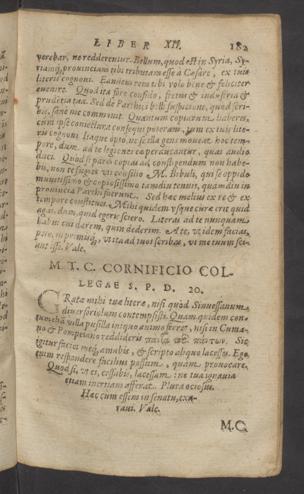 LIBER XII. 182
verebar, ne redderentur. Bellum, quod est in Syria, Sy-
riamq́; prouinciam tibi tributam esse à Cæsare, ex tuis
literis cognoui. Eam rem tibi volo bene & feliciter
euenire. Quod ita fore confido, fretus & industria &
prudentia tua. Sed de Parthici belli suspicione, quod scri-
bis, sane me commouit. Quantum copiarum haberes,
cum ipse coniectura consequi poteram, tum ex tuis lite-
ris cognoui. Itaque opto, ne se illa gens moueat hoc tem-
pore, dum ad te legiones eæ perducantur, quas audio
duci. Quòd si pares copias ad confligendum non habe-
bis, non te fugiet vti consilio M. Bibuli, qui se oppido
munitissimo & copiosissimo tamdiu tenuit, quamdiu in
prouincia Parthi fuerunt. Sed hæc melius ex re & ex
tempore constitues. Mihi quidem vsque curæ erit quid
agas, dum, quid egeris, sciero. Literas ad te nunquam
habui cui darem, quin dederim. A te, vt idem facias,
peto, in primisq́;, vt ita ad tuos scribas, vt me tuum sci-
ant esse. Vale.
M. T. C. CORNIFICIO COL-
LEGAE S. P. D. 20.
GRata mihi tuæ literæ, nisi quòd Sinuessanum
diuersoriolum contempsisti. Quam quidem con-
tumeliam villa pusilla iniquo animo feret, nisi in Cuma-
no & Pompeiano reddideris
gitur facies meq́; amabis, & scripto aliquo lacesses. Ego,
enim respondere facilius possum, quàm prouocare.
Quòd si, vt es, cessabis, lacessam: ne tua ignauia
etiam inertiam afferat. Plura otiosus.
Hæc cum essem in senatu, exa-
raui. Vale.
M.C.